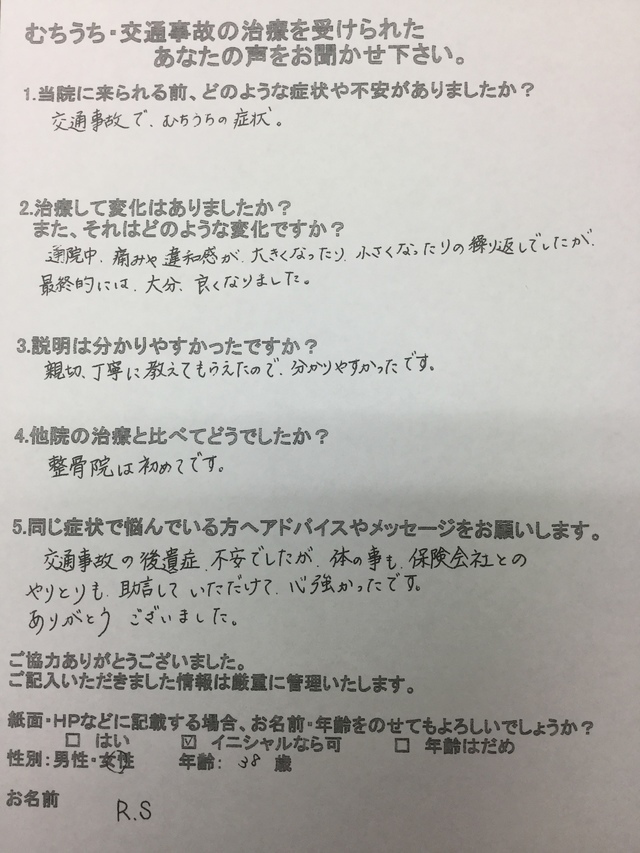 むちうち・交通事故の治療を受けられた
あなたの声をお聞かせ下さい。
1.当院に来られる前、どのような症状や不安がありましたか？
交通事故で、むちうちの症状。
2.治療して変化はありましたか？
また、それはどのような変化ですか？
通院中、痛みや違和感が、大きくなったり、小さくなったりの繰り返しでしたが、
最終的には、大分、良くなりました。
3.説明は分かりやすかったですか？
親切、丁寧に教えてもらえたので、分かりやすかったです。
4.他院の治療と比べてどうでしたか？
整骨院は初めてです。
5.同じ症状で悩んでいる方へアドバイスやメッセージをお願いします。
交通事故の後遺症、不安でしたが、体の事も、保険会社との
やりとりも、助言して いただけて、心強かったです。
ありがとう ございました。
ご協力ありがとうございました。
ご記入いただきました情報は厳重に管理いたします。
紙面・HPなどに記載する場合、お名前・年齢をのせてもよろしいでしょうか？
☐ はい ☑ イニシャルなら可 ☐ 年齢はだめ
性別：男性・女性 年齢： 38 歳
お名前 R.S